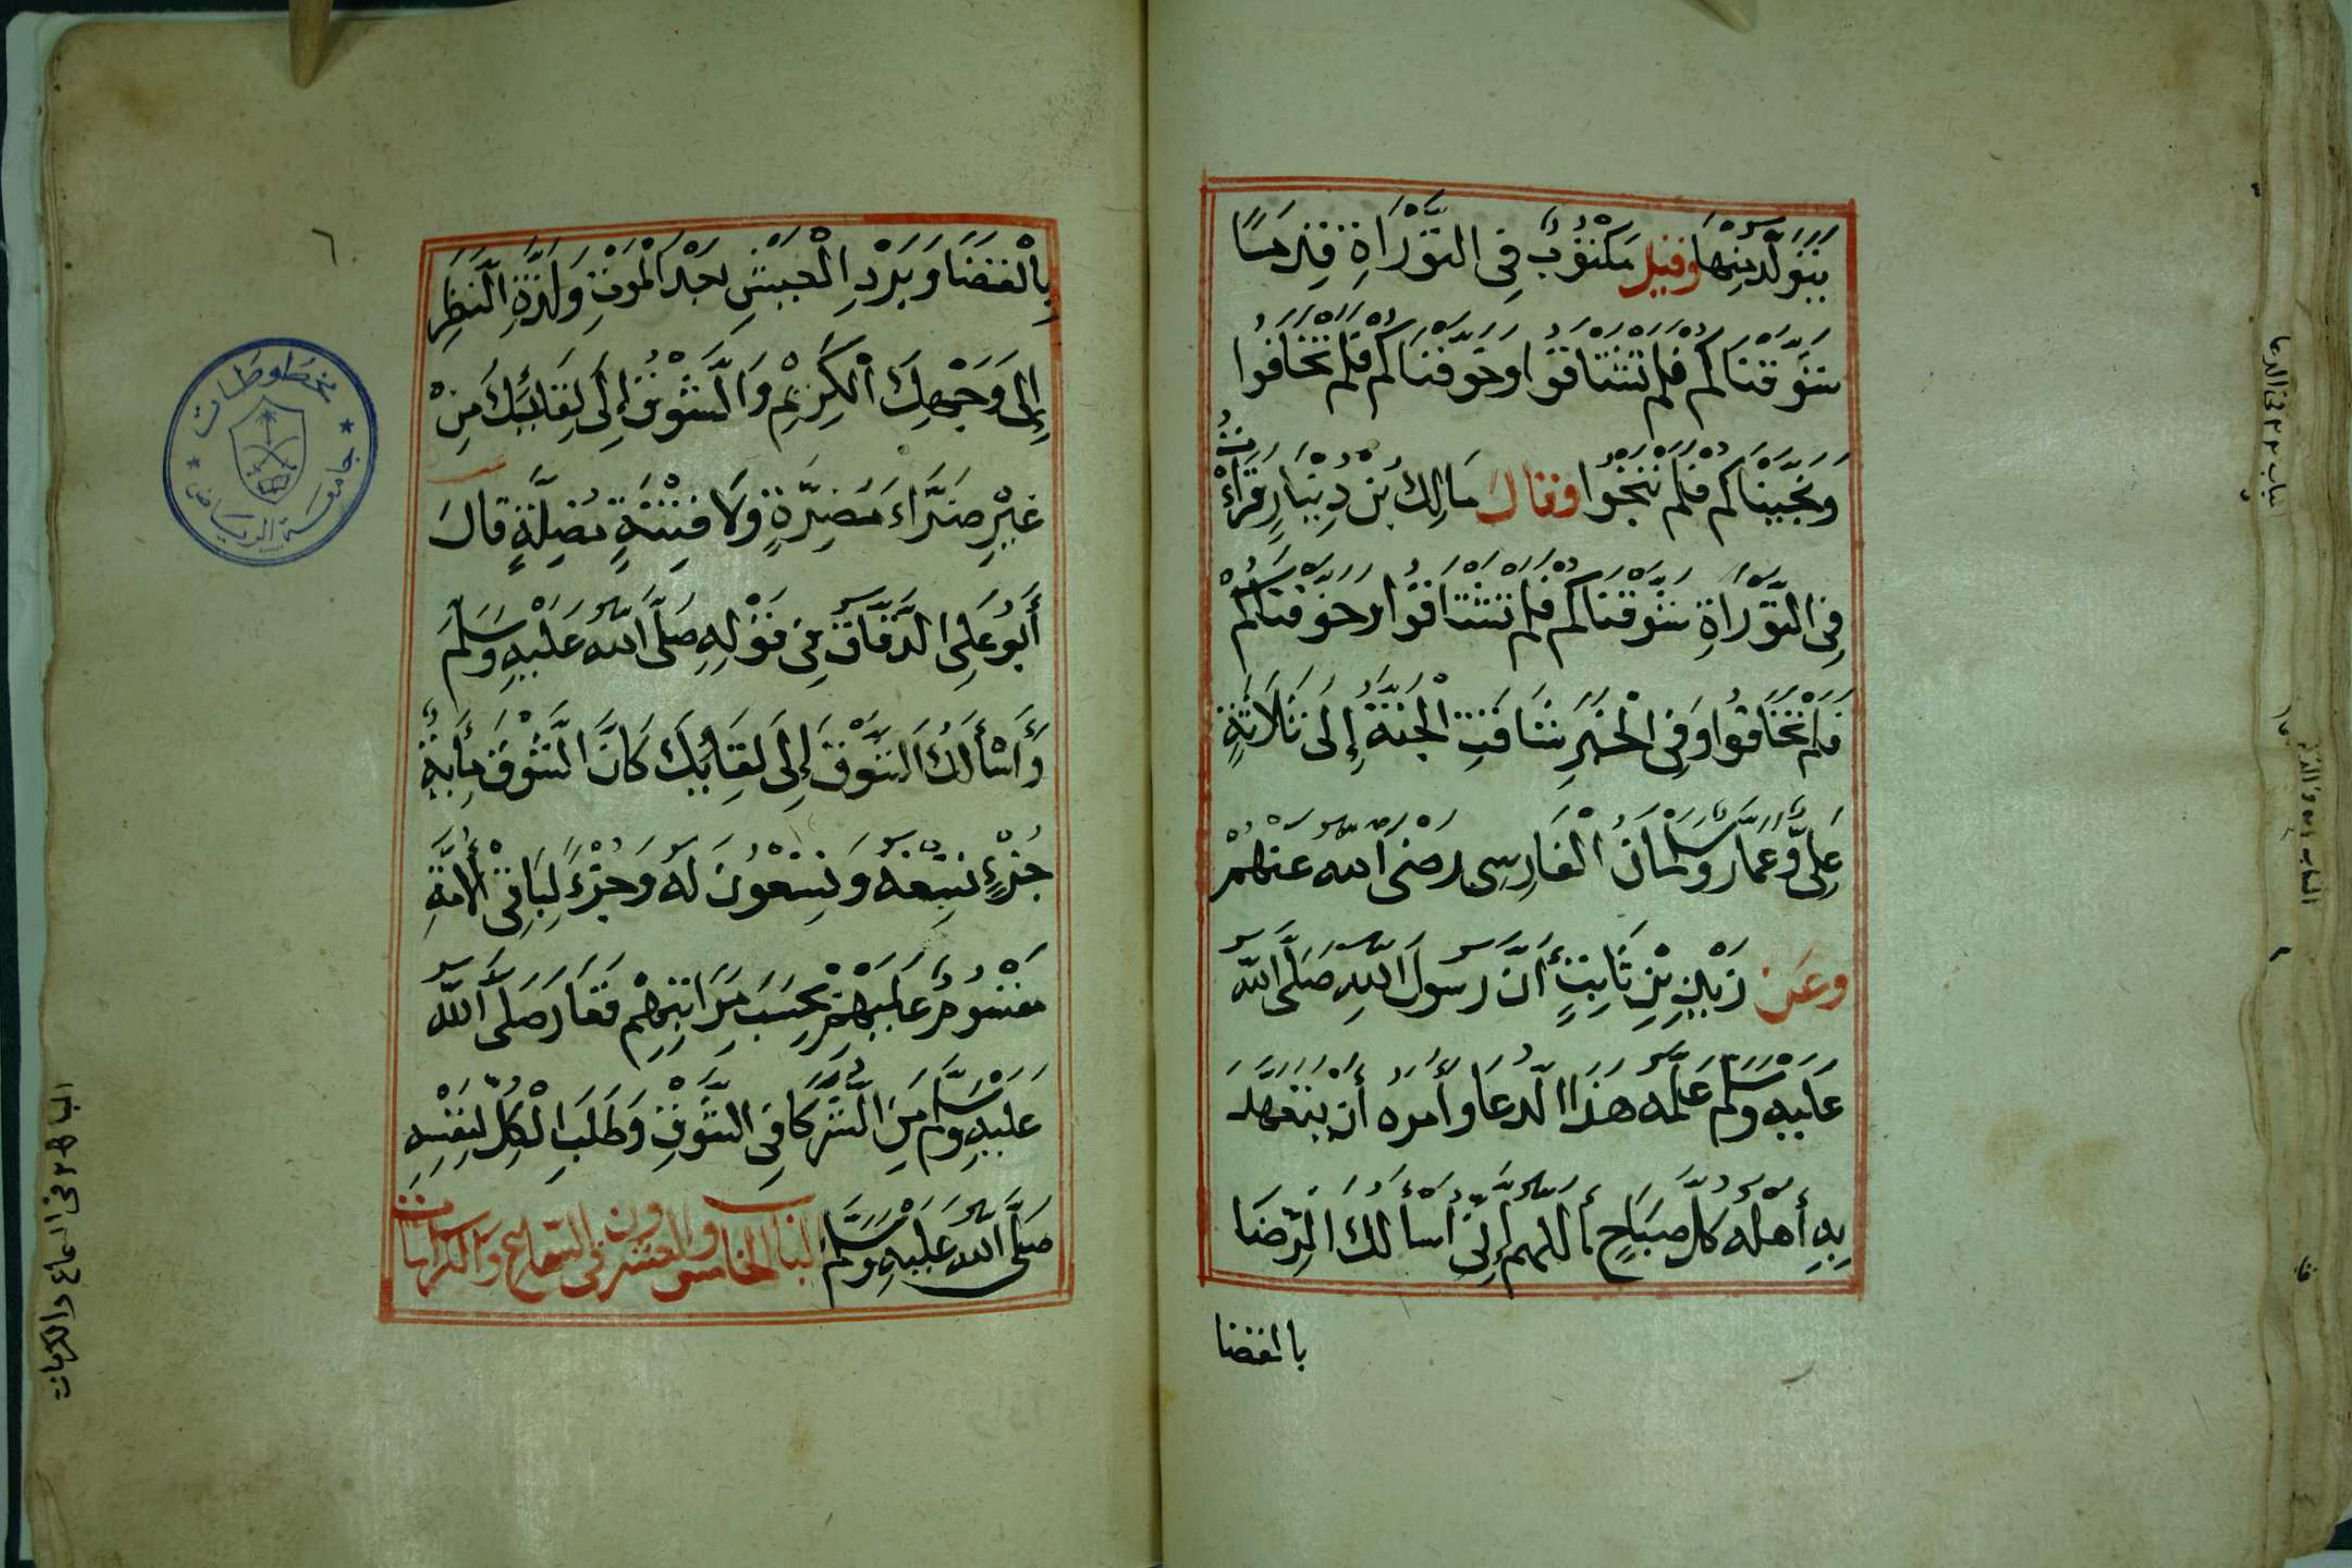 يَتَوَلَّدُ مِنْهَا وقيل مَكْتُوبٌ فِى التَّوْرَاةِ قِدمًا
شَوَّقْنَاكُمْ فَلَمْ تَشْتَاقُوا وخَوَّفْنَاكُمْ فَلَمْ تَخَافُوا
وَنَحَّيْنَاكُمْ فَلَمْ تَنْحُوا وقال مَالِكُ بْنُ دِينَارٍ قَرَأْتُ
فِى التَّوْرَاةِ شَوَّقْنَاكُمْ فَلَمْ تَشْتَاقُوا وخَوَّفْنَاكُمْ
فَلَمْ تَخَافُوا وَفِى الْخَبَرِ شْتَاقَتِ الْجَنَّةُ إِلَى ثَلَاثَةٍ
عَلِىٌّ وَعَمَّارٌ وَسَلْمَانُ الْفَارِسِى رضىَ اللّه عَنْهُمْ
وعَن زَيْدِ بْنِ ثَابِتٍ أَنَّ رَسُولَ اللّهِ صَلَّى اللّه
عَلَيْهِ وَسَلَّمَ عَلَّمَهُ هَذَا الدُّعَا وَأَمَرَهُ أَنْ يَتَعَهَّدَ
بِهِ أَهْلَهُ كُلَّ صَبَاحٍ أللهم إِنِّى أسأَلُكَ الرِّضَا
بالقضا
٦
بِالْقَضَا وَبَرْدِ الْعَيْشِ بَعْدَ الْمَوْتِ وَلَذَّةِ النَّظَرِ
إِلَى وَجْهِكَ الْكَرِيْمِ وَالشَّوْقِ إِلَى لِقَائِكَ مِنْ
غَيْرِ ضَرَّاءَ مُضِرَّةٍ وَلَا فِتْنَةٍ مُضِلَّةٍ قَالَ
أَبُو عَلِى الدَّقَّاق فِى قَوْلِهِ صَلَّى اللّه عَلَيْهِ وَسَلَّمَ
وَأَسْأَلُكَ الشَّوْقَ إِلَى لِقَائِكَ كَانَ الشَّوْقُ مِأَيةُ
جُزْءٍ تِسْعَة وَتِسْعُونَ لَهُ وَجُزْءٌ لِبَاقِى الْأُمَّةِ
مَقْسُومٌ عَلَيْهِمْ بِحَسَبِ مَرَاتِبِهِمْ فَغَارَ صَلَّى اللّه
عَلَيْهِ وَسَلَّمَ مِنَ الشُّرَكَا فِى الشَّوْقِ وَطَلَبَ الْكُلَّ لِنَفْسِهِ
صَلَّى اللّه عَلَيْهِ وَسَلَّمَ الباب الخامس والعشرون فى السماع والكرامات
مخطوطات
جامعة الرياض
فى السماع والكرامات